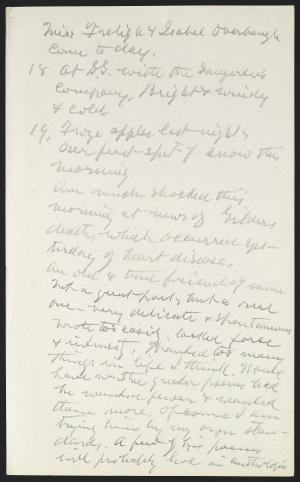 Miss Freligh & Isabel Overbaugh
come to day.
18 At SS. write the Dangerous
Company, Bright & windy
& cold.
19, Froze apples last night &
our first spit of snow this
morning
Am much shocked this
morning at news of Gilders
death, which occurred yes-
terday of heart disease,
An old & true friend of mine
Not a great poet, but a real
one - very delicate & spontaneous
wrote too easily, lacked force
& interest, Wanted too many
things in life I think. Would
have written greater poems had
he wanted fewer & wanted
them more, Of course I am
trying him by my own stan-
dards. A few of his poems
will probably live in anthologies